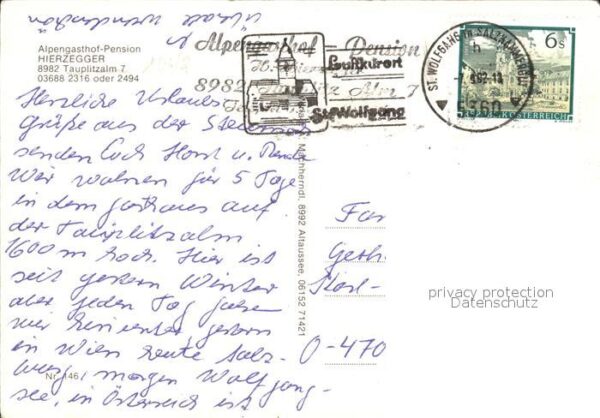 Alpengasthof-Pension
HIERZEGGER
8982 Tauplitzalm 7
03688 2316 oder 2494
Alpengasthof - Pension
8982
Luftkurort
St. Wolfgang
ST. WOLFGANG IM SALZKAMMERGUT
5360
6 S
REPUBLIK ÖSTERREICH
Herzliche Urlaubs-
grüße aus der Steiermark
senden Euch Horst u.
Wir wohnen für 5 Tage
in dem Gasthaus auf
der Tauplitzalm
1600 m hoch. Hier ist
seit gestern Winter
aber jeden Tag fahren
wir herunter gestern
in Wien heute Salz-
burg, morgen Wolfgang-
see, in Österreich ist
Fam
Gerh.
Karl-
O-470
8992 Altaussee, 06152 71421
Nr. 146
privacy protection
Datenschutz